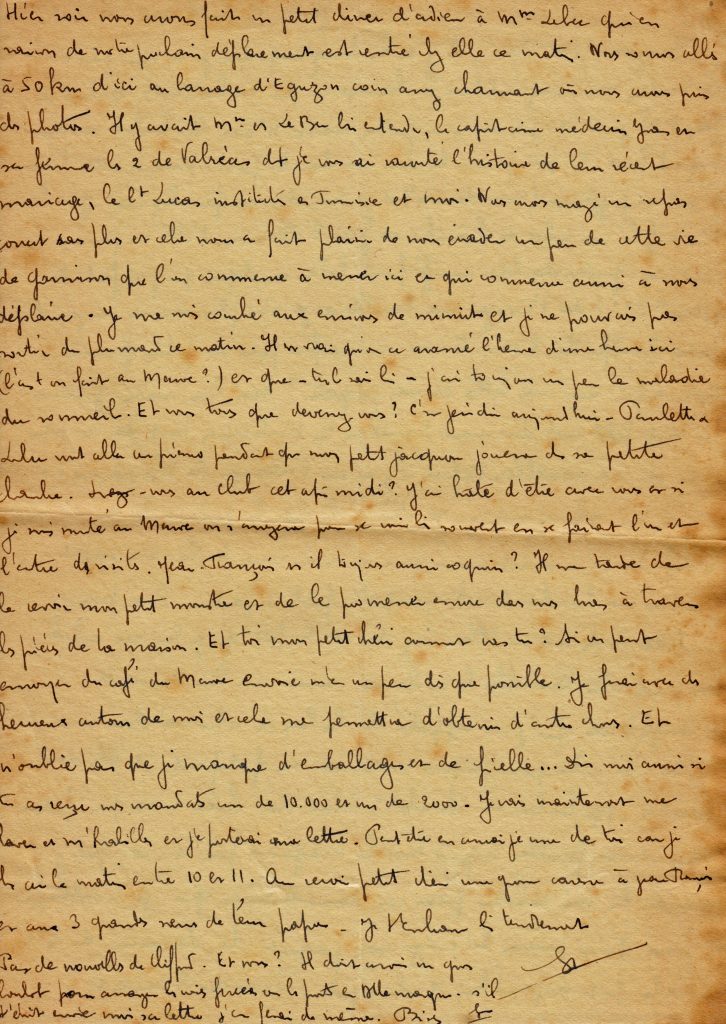 Hier soir nous avons fait un petit diner d'adieu à Mme Lebu qui en
raison de notre prochain déplacement est rentré chez elle ce matin. Nous sommes allés
à 50 km d'ici au barrage d'Eguzon coin assez charmant où nous avons pris
des photos. Il y avait Mme et Le Bu bien entendu, le capitaine médecin et
sa femme les 2 de Valréas dt je vous ai raconté l'histoire de leur récent
mariage, le Lt Lucas instituteur en Tunisie et moi. Nous avons mangé un repas
sans plus et cela nous a fait plaisir de nous évader un peu de cette vie
de garnison que l'on commence à mener ici et qui commence aussi à nous
déplaire. Je me suis couché aux environs de minuit et je ne pouvais pas
sortir du plumard ce matin. Il est vrai qu'on a avancé l'heure d'une heure ici
(l'a-t-on fait au Maroc?) et que j'ai toujours un peu la maladie
du sommeil. Et vous tous que devenez vous? C'est jeudi aujourd'hui - Paulette
Lebu vont aller au pendant que mon petit jacques jouera de sa petite
Irez-vous au club cet après midi? J'ai hâte d'être avec vous et si
je suis muté au Maroc on s'arrangera pour se voir souvent en se faisant l'un et
l'autre des visites. Jean-François est il toujours aussi coquin? Il me tarde de
le revoir mon petit monstre et de le promener encore dans mes bras à travers
les pièces de la maison. Et toi mon petit chéri comment vas tu? Si on peut
envoyer du café du Maroc envoie m'en un peu dès que possible. Je ferai avec des
heureux autour de moi et cela me permettra d'obtenir d'autres choses. Et
n'oublie pas que je manque d'emballages et de ficelle... Dis moi aussi si
tu as reçu mes mandats un de 10.000 et un de 2000. Je vais maintenant me
laver et m'habiller et je porterai ma lettre. Peut être en aurai je une de toi car je
les ai le matin entre 10 et 11. Au revoir petit chéri une grosse caresse à jean François
et aux 3 grands de leur papa - Je t'embrasse bien tendrement
Pas de nouvelles de Clifford. Et vous? Il doit avoir un gros
boulot pour les vois ferrées ou les ponts en Allemagne. s'il
t'écrit envoie moi sa lettre j'en ferai de même. Bises